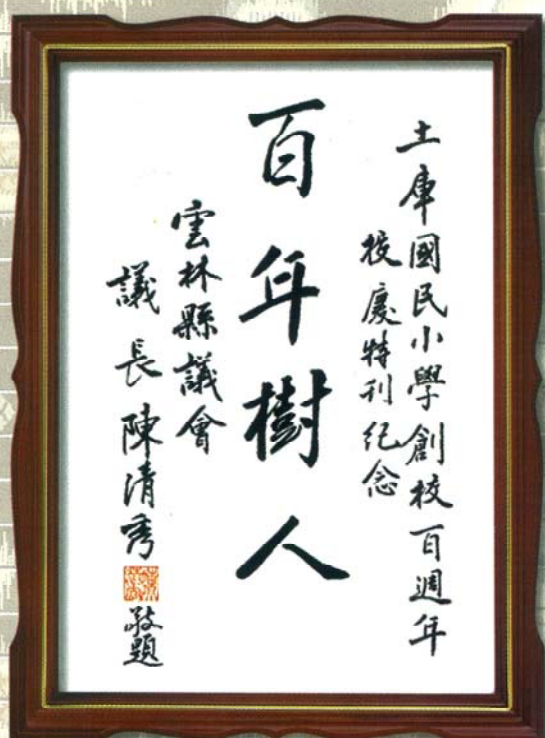 土庫國民小學創校百週年
校慶特刊紀念
百年樹人
雲林縣議會
議長陳清秀
敬題